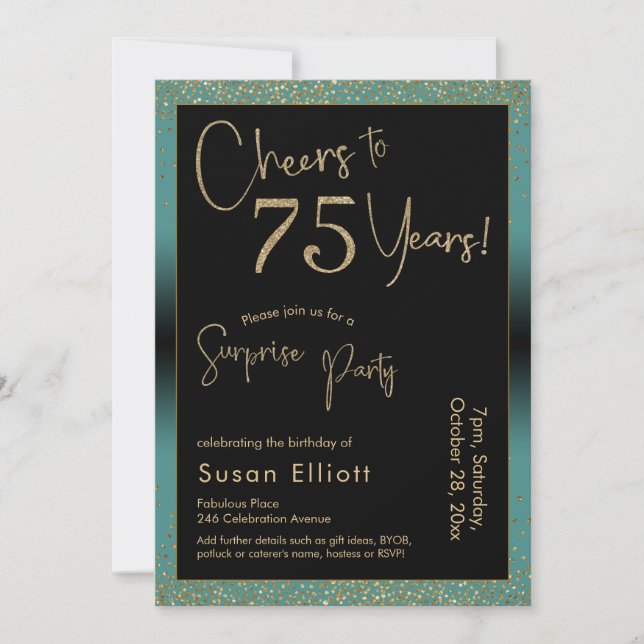 Cheers to
75 Years!
Please join us for a
Surprise Party
celebrating the birthday of
Susan Elliott
Fabulous Place
246 Celebration Avenue
Add further details such as gift ideas, BYOB,
potluck or caterer's name, hostess or RSVP!
7pm, Saturday,
October 28, 20xx